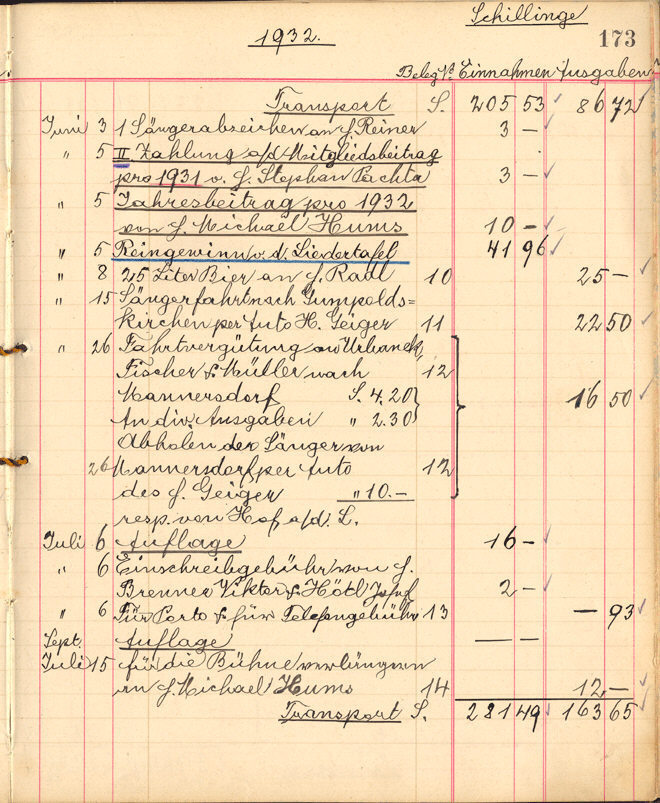 Schillinge
1932. 173
Beleg No Einnahmen Ausgaben
Transport S. 205 53 86 72
Juni 3 1 Sängerabzeichen an H. Reiner 3 —
" 5 II Zahlung a/d Mitgliedsbeitrag
pro 1931 v. H. Stephan Pachta 3 —
" 5 Jahresbeitrag pro 1932
von H. Michael Hums 10 —
" 5 Reingewinn v. d. Liedertafel 41 96
" 8 25 Liter Bier an H. Raul 10 25 —
" 15 Sängerfahrt nach Gumpolds=
kirchen per Auto H. Geiger 11 22 50
" 26 Fahrtvergütung an Urbanek,
Fischer & Müller nach 12
Mannersdorf S. 4.20 16 50
An div. Ausgaben " 2.30
Abholen der Sänger von
26 Mannersdorf per Auto 12
des H. Geiger " 10.—
resp. von Hof a/d. L.
Juli 6 Auflage 16 —
" 6 Einschreibgebühr von H.
Brenner Viktor & Hötl Josef 2 —
" 6 Für Porto & für Telefongebühr 13 — 93
Sept. Auflage — —
Juli 15 für die Bühne verlängern
an H. Michael Hums 14 12 —
Transport S. 281 49 163 65